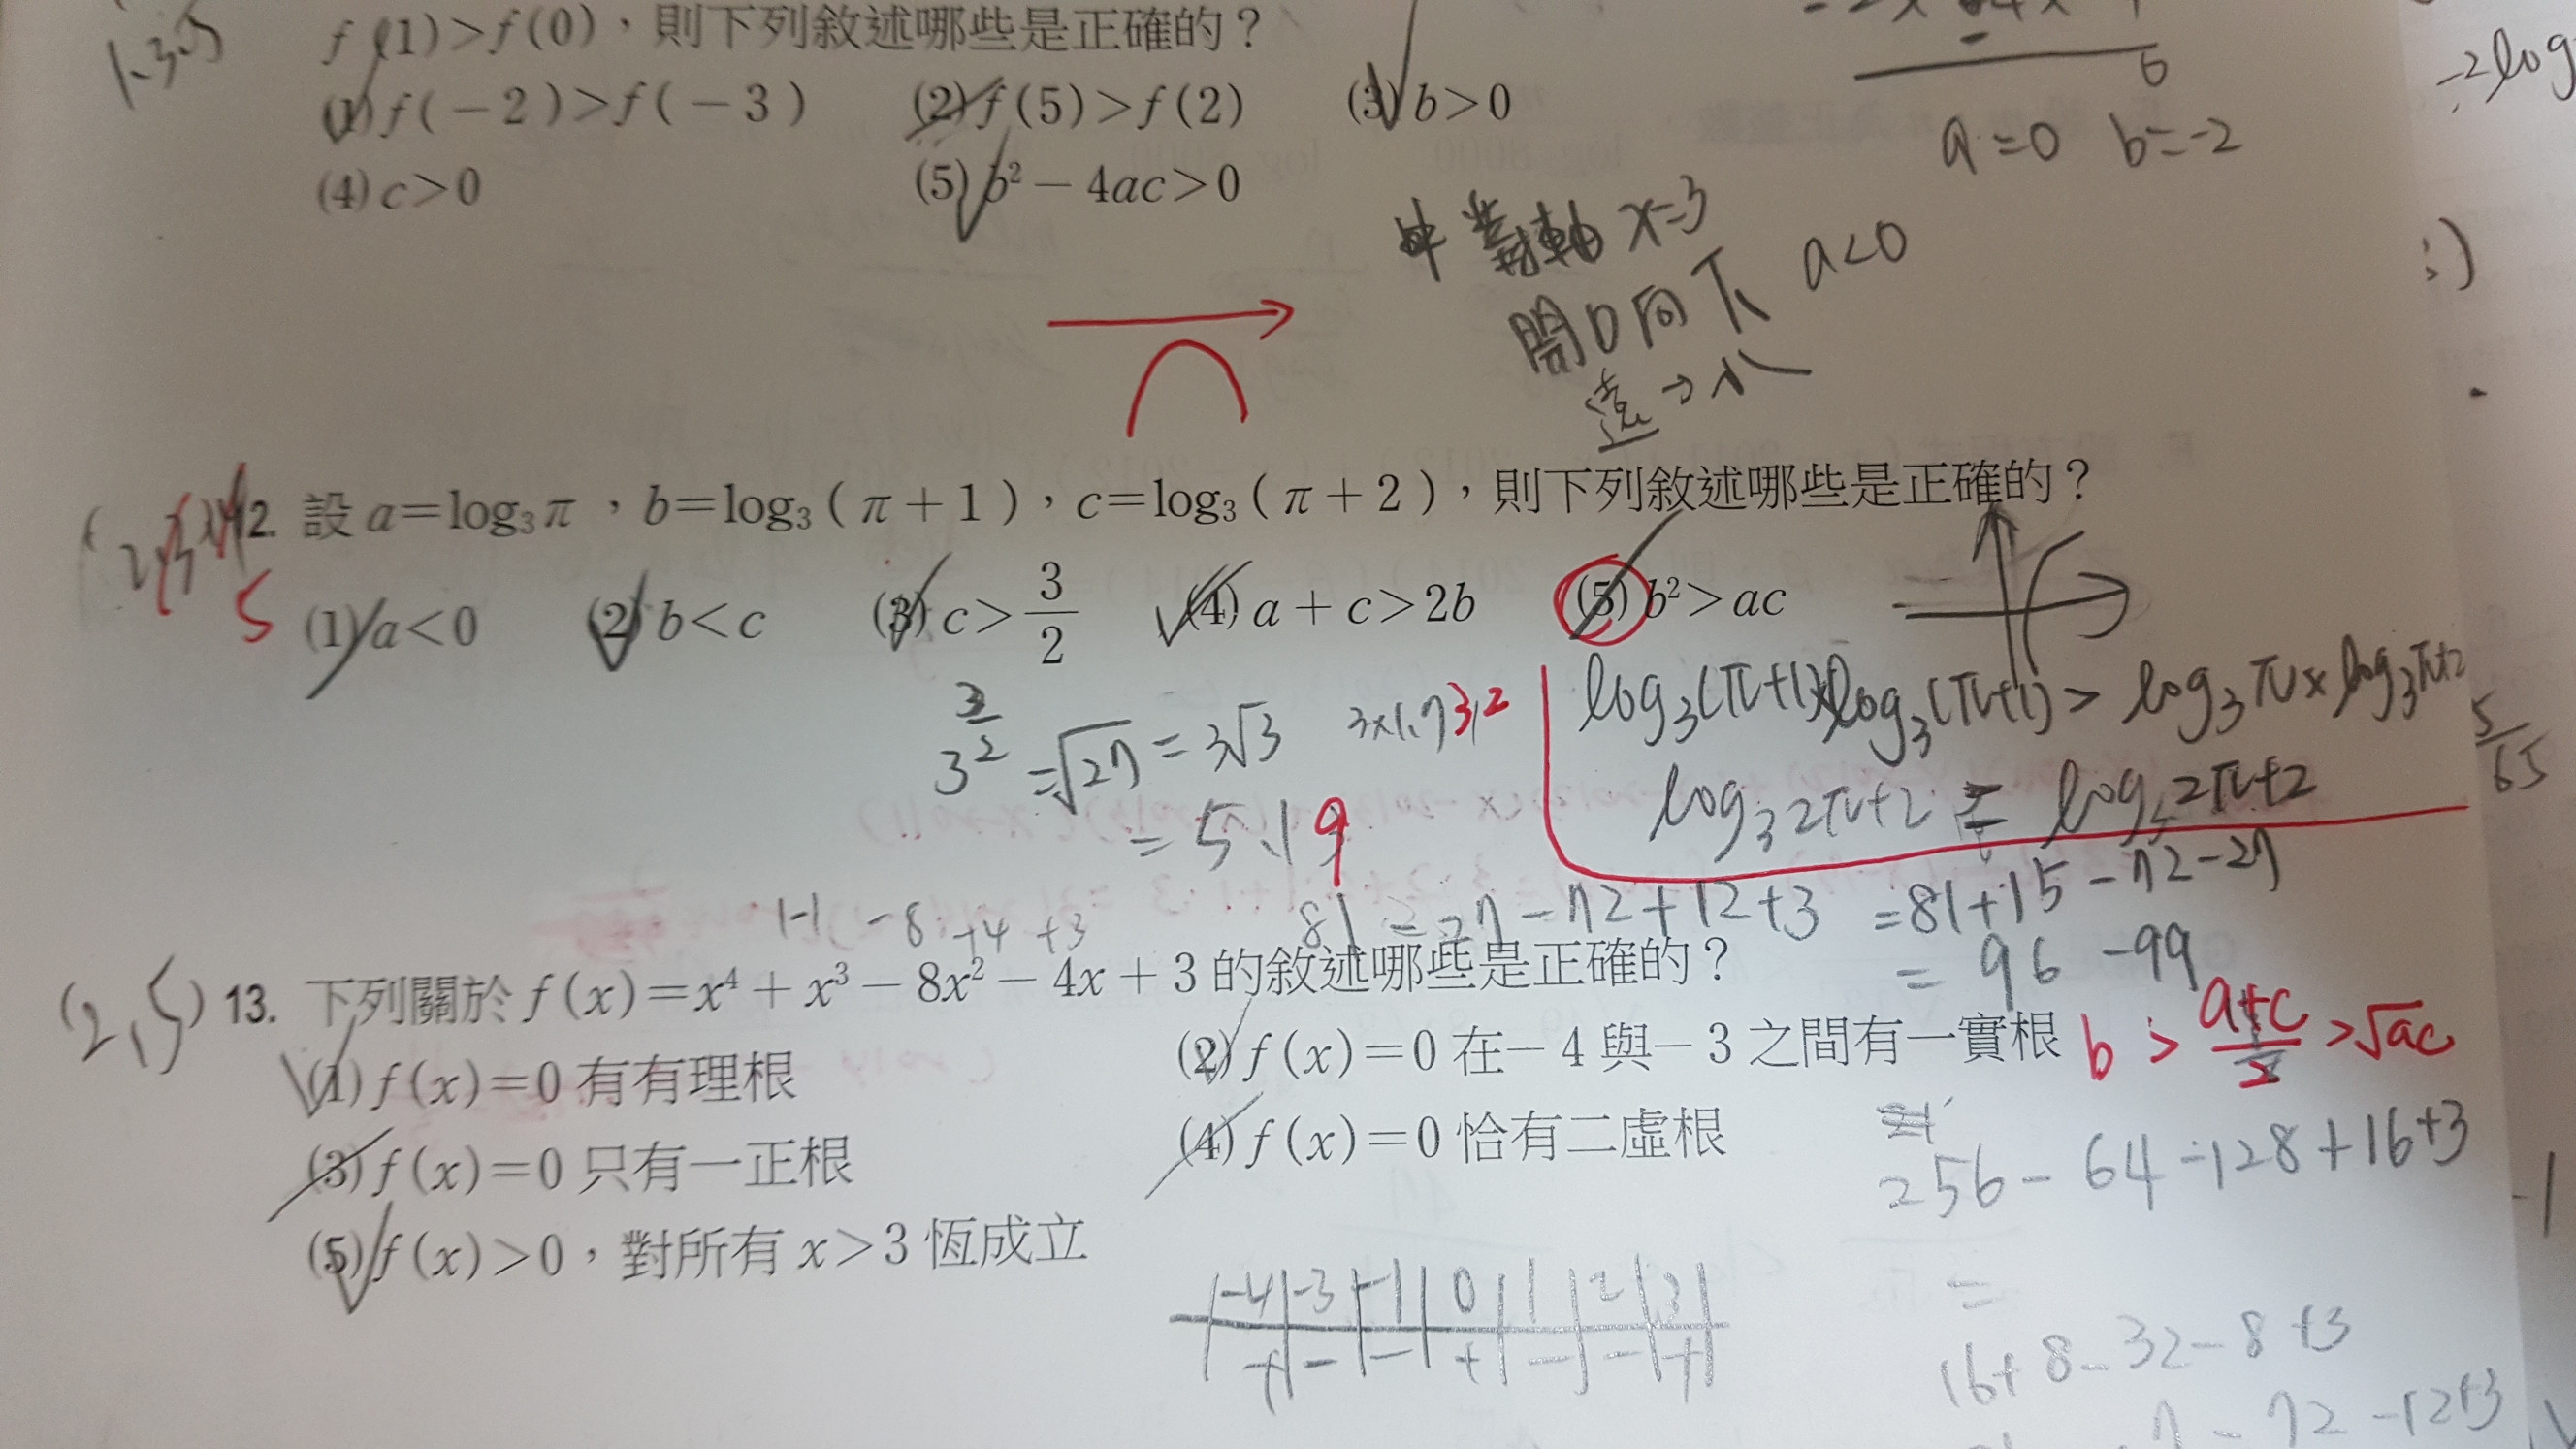 1.3.5
f(1)>f(0)，則下列敘述哪些是正確的？
(1) f(－2)>f(－3) (2) f(5)>f(2) (3) b>0
(4) c>0 (5) b²－4ac>0
6
a=0 b=-2
-2log
對稱軸 x=3
開口向下 a<0
遠→小
:)
2. 設 a=log₃π，b=log₃(π+1)，c=log₃(π+2)，則下列敘述哪些是正確的？
5
(1) a<0 (2) b<c (3) c>3/2 (4) a+c>2b (5) b²>ac
3^(3/2) =√27 =3√3
= 5.19
log₃(π+1)×log₃(π+1) > log₃π×log₃π+2
log₃2π+2 = log₃2π+2
5/65
81-27-72+12+3 =81+15-72-27
= 96 -99
1-1 -8 +4 +3
(2,5) 13. 下列關於 f(x)=x⁴+x³－8x²－4x+3 的敘述哪些是正確的？
(1) f(x)=0 有有理根 (2) f(x)=0 在－4 與－3 之間有一實根
b > (a+c)/2 >√ac
(3) f(x)=0 只有一正根 (4) f(x)=0 恰有二虛根
256-64-128+16+3
=
(5) f(x)>0，對所有 x>3 恆成立
-4 -3 -1 0 1 2 3
+ - - + - - +
16+8-32-8+3
-72-12+3